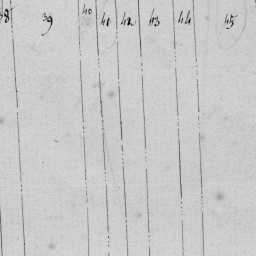 38 39 40 41 42 43 44 45